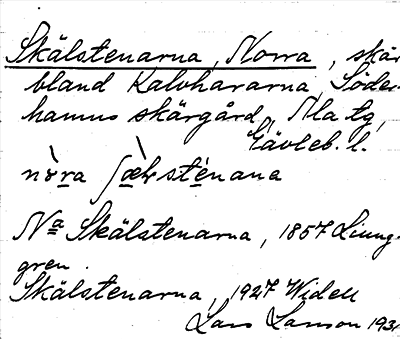 Skälstenarna, Norra, skär
bland Kalvhararna, Söder-
hamns skärgård, Ala tg,
Gävleb. l.
nòra stenana
Nª Skälstenarna, 1857 Ljung-
gren.
Skälstenarna, 1927 Widell
Lars Larson 193